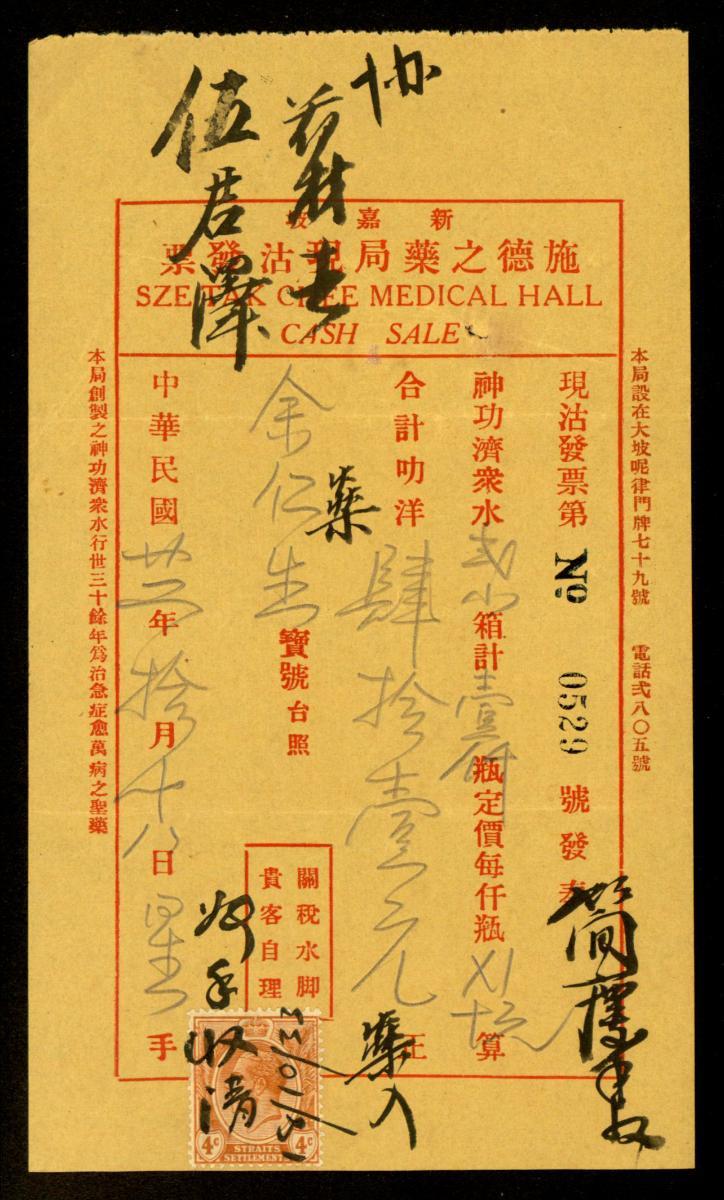 協
伍居澤
新嘉坡
施德之藥局現沽發票
SZE TAK CHEE MEDICAL HALL
CASH SALE
本局設在大坡呢律門牌七十九號 電話弍八〇五號
現沽發票第 No 0529 號發奉
神功濟衆水弍小箱計壹仟瓶定價每仟瓶算
合計叻洋肆拾壹元正
藥
余仁生寶號台照
藥入
關稅水脚
貴客自理
中華民國廿三年拾月十八日星手
收清
本局創製之神功濟衆水行世三十餘年爲治急症愈萬病之聖藥
4c STRAITS SETTLEMENTS 4c